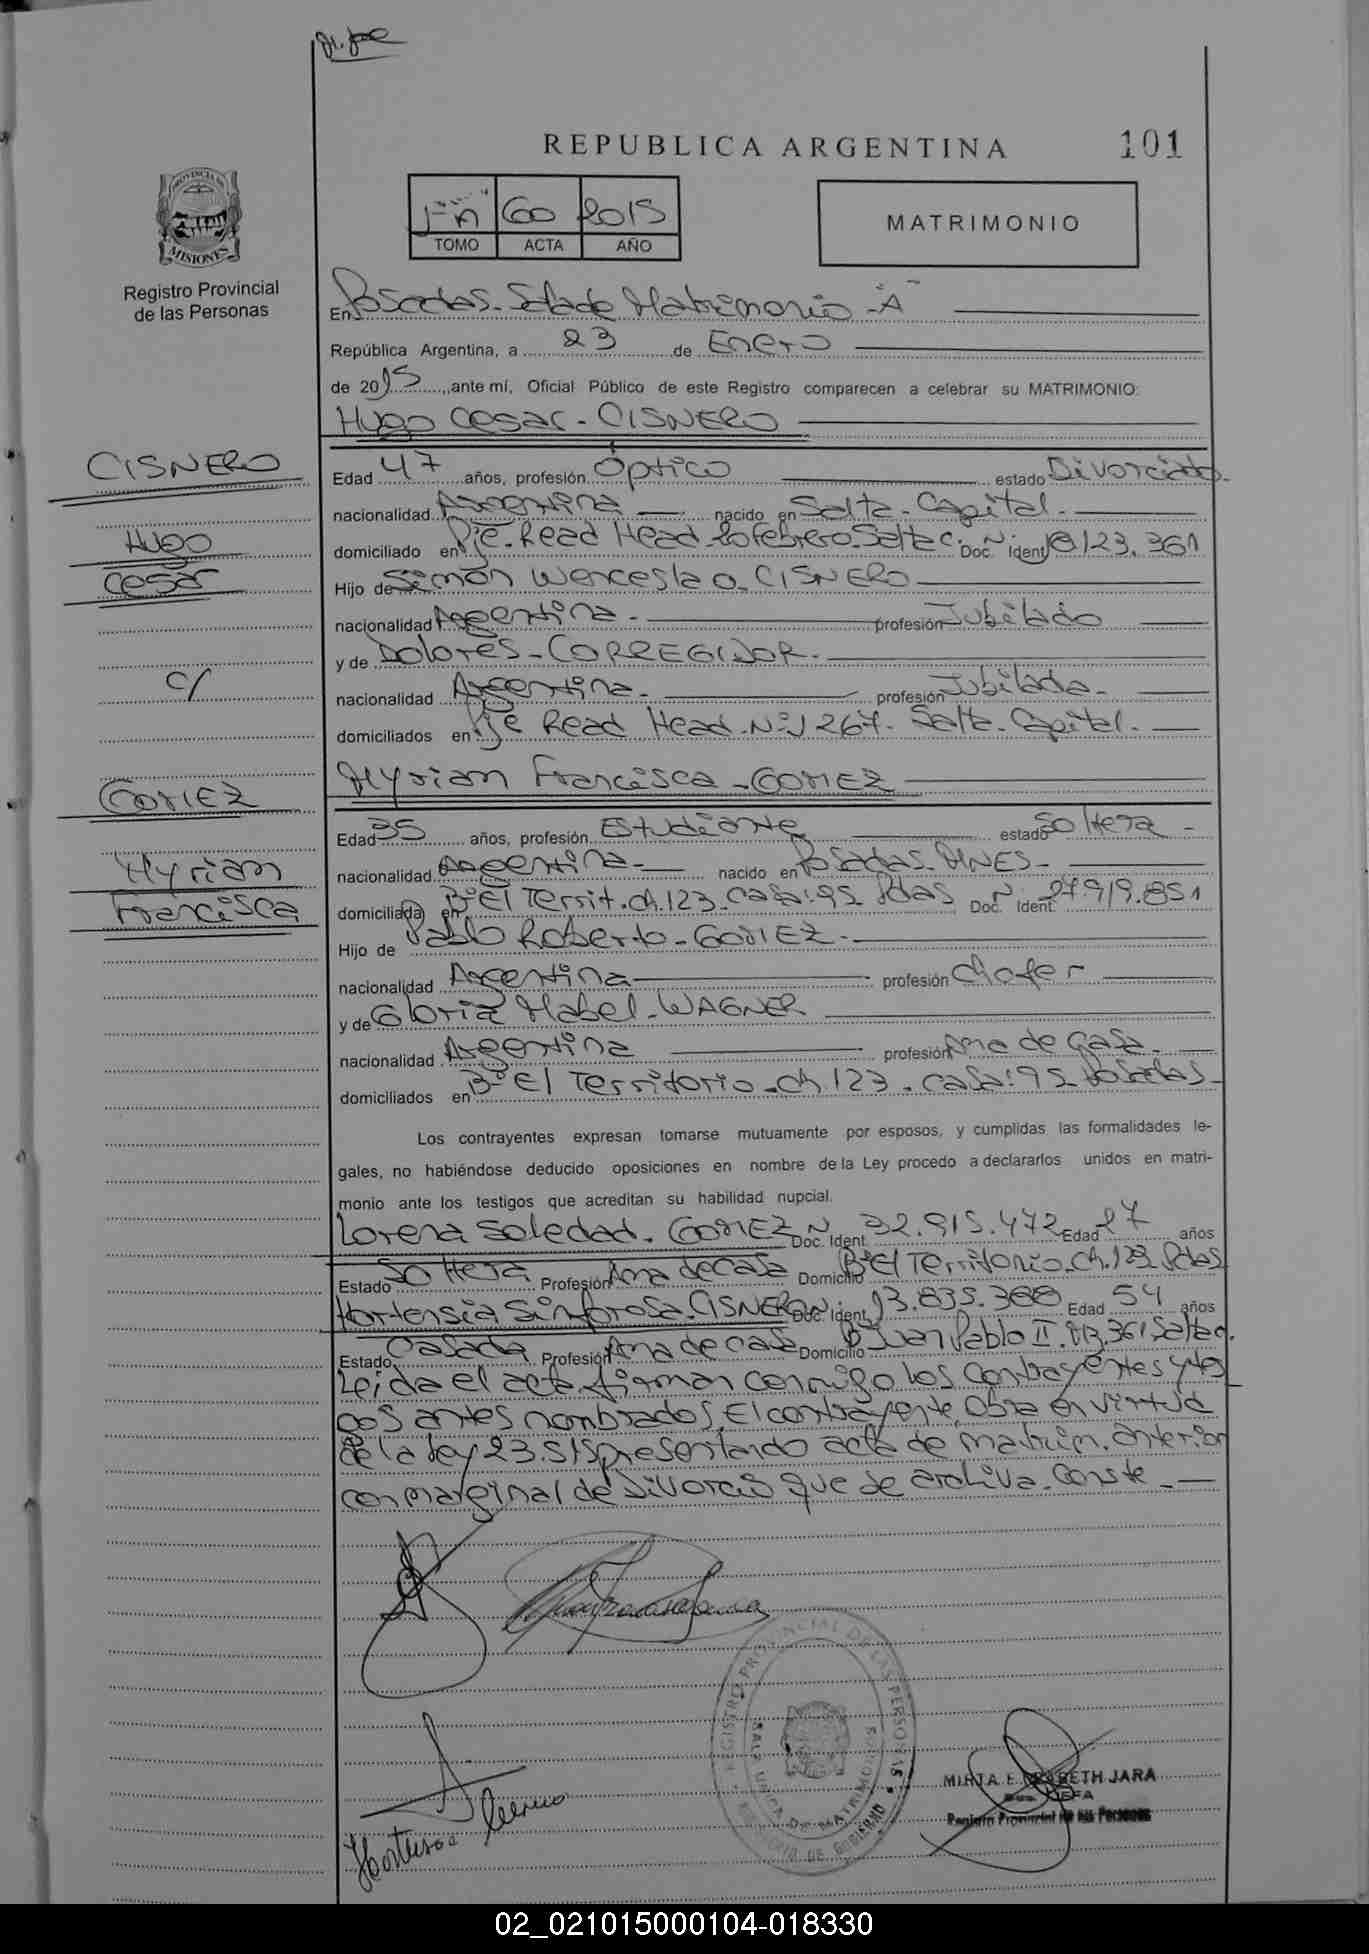 REPUBLICA ARGENTINA 101
PROVINCIA DE
MISIONES
Registro Provincial
de las Personas
60 2015
TOMO ACTA AÑO
MATRIMONIO
En Posadas. Sala de Matrimonio "A"
República Argentina, a 23 de Enero
de 2015, ante mí, Oficial Público de este Registro comparecen a celebrar su MATRIMONIO:
Hugo Cesar - CISNERO
CISNERO
Hugo
Cesar
c/
GOMEZ
Myrian
Francisca
Edad 47 años, profesión Óptico estado Divorciado.
nacionalidad Argentina nacido en Salta - Capital.
domiciliado en Pje. Read Head 20 febrero. Salta C. Doc. N. Ident 18.123.361
Hijo de Simón Wenceslao. CISNERO
nacionalidad Argentina. profesión Jubilado
y de Dolores - CORREGIDOR.
nacionalidad Argentina. profesión Jubilada.
domiciliados en Pje Read Head. Nº 1267. Salta. Capital.
Myrian Francisca - GOMEZ
Edad 35 años, profesión Estudiante estado Soltera -
nacionalidad Argentina. nacido en Posadas. MNES -
domiciliada en Bº El Territ. ch. 123. casa: 95. Pdas Doc. N. Ident. 27.919.851
Hijo de Pablo Roberto - GOMEZ.
nacionalidad Argentina profesión Chofer
y de Gloria Mabel. WAGNER
nacionalidad Argentina profesión Ama de Casa.
domiciliados en Bº El Territorio. ch. 123. casa: 95. Posadas.
Los contrayentes expresan tomarse mutuamente por esposos, y cumplidas las formalidades le-
gales, no habiéndose deducido oposiciones en nombre de la Ley procedo a declararlos unidos en matri-
monio ante los testigos que acreditan su habilidad nupcial.
Lorena Soledad. GOMEZ Doc. N. Ident. 32.915.472 Edad 27 años
Estado Soltera Profesión Ama de casa Domicilio Bº El Territorio. ch. 123. Pdas
Hortensia Sinforosa. CISNERO Doc. N. Ident. 13.835.388 Edad 54 años
Estado Casada Profesión Ama de casa Domicilio Bº Juan Pablo II. 361 Salta C.
Leida el acta firman conmigo los contrayentes y tes
gos antes nombrados. El contrayente obra en virtud
de la ley 23.515 presentando acta de matrim. anterior
con marginal de Divorcio que se archiva. Conste.
REGISTRO PROVINCIAL DE LAS PERSONAS
SALA UNICA DE MATRIMONIOS
MINISTERIO DE GOBIERNO
MIRTA ELIZABETH JARA
JEFA
Registro Provincial de las Personas
02_021015000104-018330